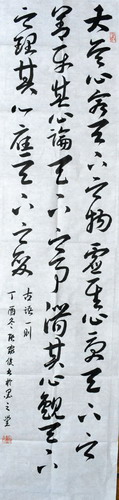 大其心容天下之物虛其心受天下之
善平其心論天下之事潛其心觀天下
之理其心應天下之變
古語一則
丁酉冬